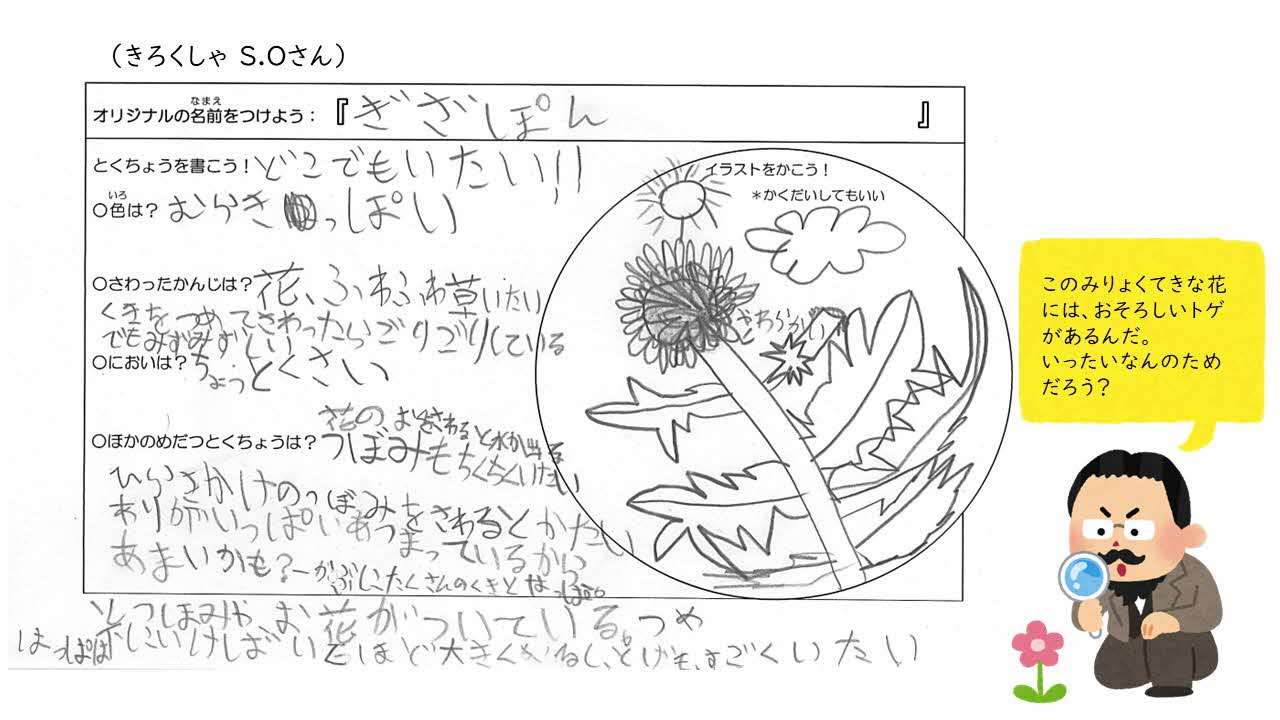 (きろくしゃ S.Oさん)
オリジナルの名前をつけよう：『ぎざぽん』
なまえ
とくちょうを書こう！どこでもいたい!!
いろ
○色は？むらさきっぽい
○さわったかんじは？花、ふわふわ草いたい
くきをつめでさわったらごりごりしている
でもみずみずしい
○においは？ちょっとくさい
○ほかのめだつとくちょうは？花の、おくをさわると水が出る
つぼみもちくちくいたい
ひらきかけのつぼみをさわるとかたい
ありがいっぱいあつまっているから
あまいかも？一かぶにたくさんのくきとはっぱ
とつぼみや、お花がついている。つめ
はっぱは
ほど大きく すごくいたい
イラストをかこう！
＊かくだいしてもいい
やわらかい
このみりょくてきな花
には、おそろしいトゲ
があるんだ。
いったいなんのため
だろう？